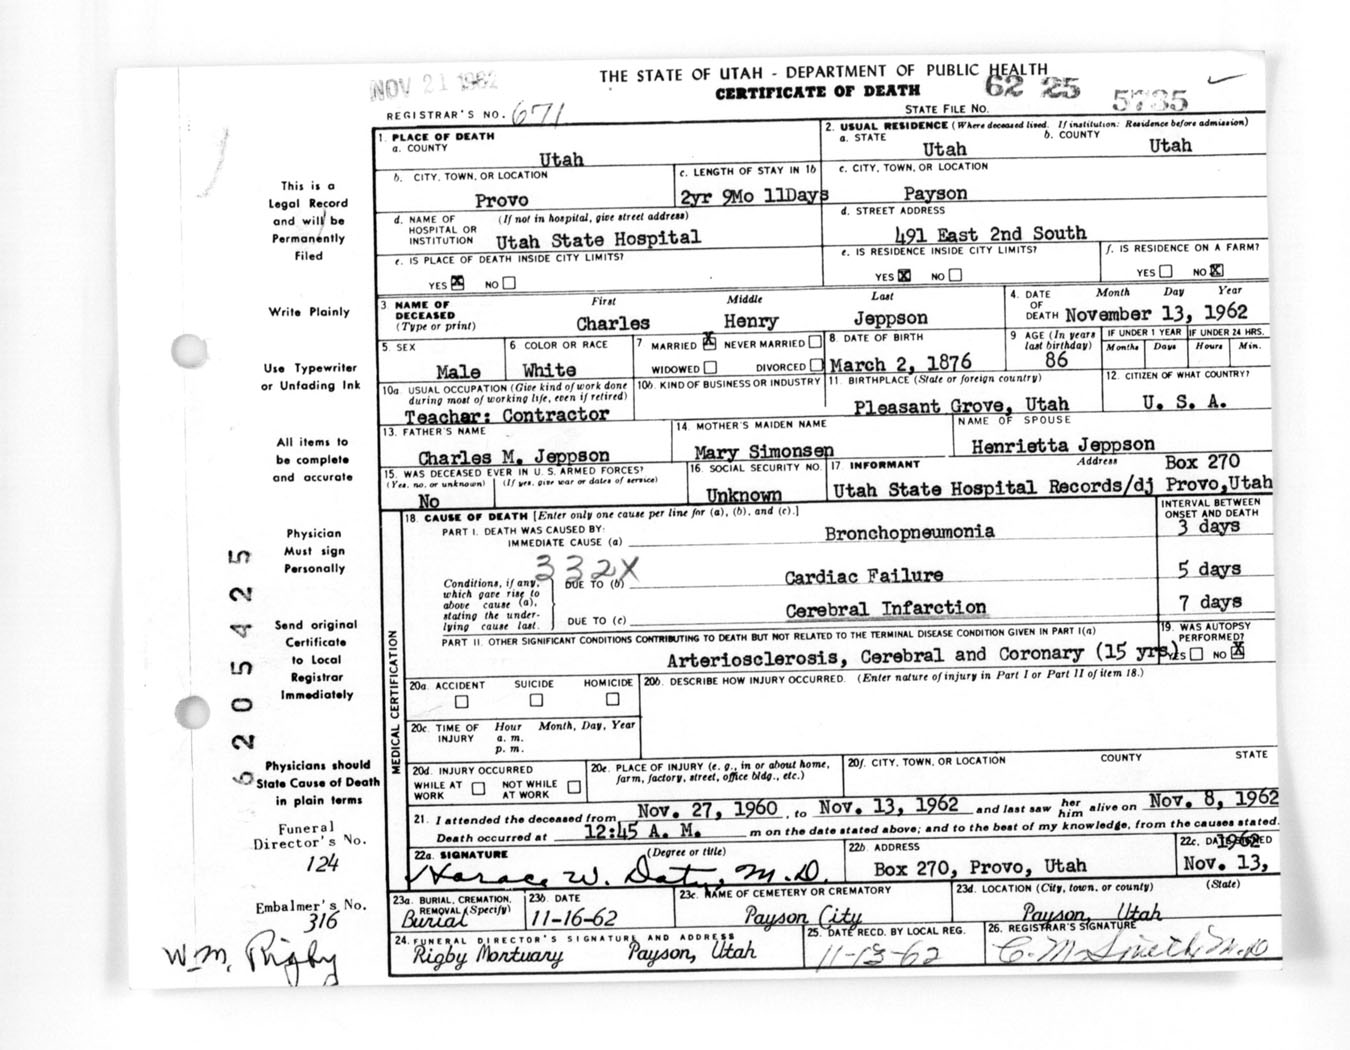 NOV 21 1962
THE STATE OF UTAH - DEPARTMENT OF PUBLIC HEALTH
CERTIFICATE OF DEATH
62 25 5735
REGISTRAR'S NO. 671
STATE FILE NO.
1. PLACE OF DEATH
a. COUNTY
Utah
2. USUAL RESIDENCE (Where deceased lived. If institution: Residence before admission)
a. STATE
Utah
b. COUNTY
Utah
b. CITY, TOWN, OR LOCATION
Provo
c. LENGTH OF STAY IN 1b
2yr 9Mo 11Days
c. CITY, TOWN, OR LOCATION
Payson
d. NAME OF HOSPITAL OR INSTITUTION
(If not in hospital, give street address)
Utah State Hospital
d. STREET ADDRESS
491 East 2nd South
e. IS PLACE OF DEATH INSIDE CITY LIMITS?
YES X NO
e. IS RESIDENCE INSIDE CITY LIMITS?
YES X NO
f. IS RESIDENCE ON A FARM?
YES NO X
3 NAME OF DECEASED (Type or print)
First Middle Last
Charles Henry Jeppson
4. DATE OF DEATH
Month Day Year
November 13, 1962
5. SEX
Male
6 COLOR OR RACE
White
7 MARRIED X NEVER MARRIED
WIDOWED DIVORCED
8. DATE OF BIRTH
March 2, 1876
9 AGE (In years last birthday)
86
IF UNDER 1 YEAR
Months Days
IF UNDER 24 HRS.
Hours Min.
10a. USUAL OCCUPATION (Give kind of work done during most of working life, even if retired)
Teachar: Contractor
10b. KIND OF BUSINESS OR INDUSTRY
11. BIRTHPLACE (State or foreign country)
Pleasant Grove, Utah
12. CITIZEN OF WHAT COUNTRY?
U. S. A.
13. FATHER'S NAME
Charles M. Jeppson
14. MOTHER'S MAIDEN NAME
Mary Simonsen
NAME OF SPOUSE
Henrietta Jeppson
15. WAS DECEASED EVER IN U. S. ARMED FORCES?
(Yes, no, or unknown) (If yes, give war or dates of service)
No
16. SOCIAL SECURITY NO.
Unknown
17. INFORMANT Address Box 270
Utah State Hospital Records/dj Provo,Utah
18. CAUSE OF DEATH [Enter only one cause per line for (a), (b), and (c).]
INTERVAL BETWEEN ONSET AND DEATH
PART I. DEATH WAS CAUSED BY:
IMMEDIATE CAUSE (a) Bronchopneumonia 3 days
332X
Conditions, if any, which gave rise to above cause (a), stating the underlying cause last.
DUE TO (b) Cardiac Failure 5 days
DUE TO (c) Cerebral Infarction 7 days
PART II. OTHER SIGNIFICANT CONDITIONS CONTRIBUTING TO DEATH BUT NOT RELATED TO THE TERMINAL DISEASE CONDITION GIVEN IN PART I(a)
Arteriosclerosis, Cerebral and Coronary (15 yrs.)
19. WAS AUTOPSY PERFORMED?
YES NO X
MEDICAL CERTIFICATION
20a. ACCIDENT SUICIDE HOMICIDE
20b. DESCRIBE HOW INJURY OCCURRED. (Enter nature of injury in Part I or Part II of item 18.)
20c. TIME OF INJURY
Hour Month, Day, Year
a. m.
p. m.
20d. INJURY OCCURRED
WHILE AT WORK NOT WHILE AT WORK
20e. PLACE OF INJURY (e. g., in or about home, farm, factory, street, office bldg., etc.)
20f. CITY, TOWN, OR LOCATION COUNTY STATE
21. I attended the deceased from Nov. 27, 1960, to Nov. 13, 1962 and last saw her him alive on Nov. 8, 1962
Death occurred at 12:45 A. M. m on the date stated above; and to the best of my knowledge, from the causes stated.
22a. SIGNATURE (Degree or title)
Horace W. M.D.
22b. ADDRESS
Box 270, Provo, Utah
22c. DATE SIGNED
1962
Nov. 13,
23a. BURIAL, CREMATION, REMOVAL (Specify)
Burial
23b. DATE
11-16-62
23c. NAME OF CEMETERY OR CREMATORY
Payson City
23d. LOCATION (City, town, or county) (State)
Payson, Utah
24. FUNERAL DIRECTOR'S SIGNATURE AND ADDRESS
Rigby Mortuary Payson, Utah
25. DATE RECD. BY LOCAL REG.
11-13-62
26. REGISTRAR'S SIGNATURE
C. M. Smith, M.D
This is a
Legal Record
and will be
Permanently
Filed
Write Plainly
Use Typewriter
or Unfading Ink
All items to
be complete
and accurate
Physician
Must sign
Personally
Send original
Certificate
to Local
Registrar
Immediately
Physicians should
State Cause of Death
in plain terms
Funeral
Director's No.
124
Embalmer's No.
316
Wm. Rigby
6205425